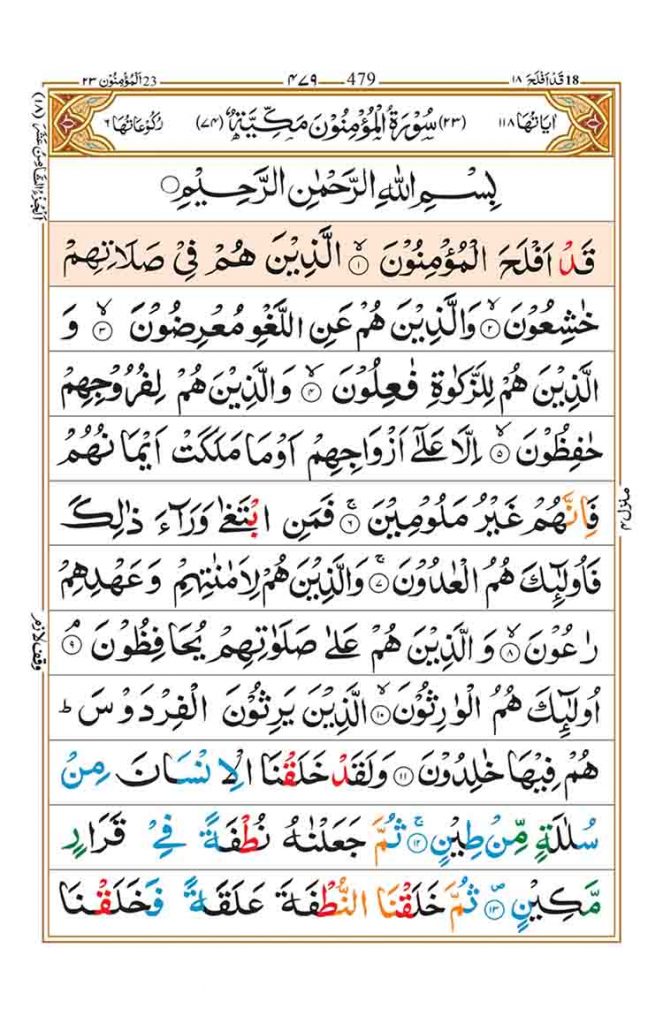 18 قَدْ اَفْلَحَ ١٨ 479 ٤٧٩ 23 اَلْمُؤْمِنُوْن ٢٣
اٰيَاتُهَا ١١٨ (٢٣) سُوْرَةُ الْمُؤْمِنُوْنَ مَكِّيَّةٌ (٧٤) رُكُوْعَاتُهَا ٦
بِسْمِ اللّٰهِ الرَّحْمٰنِ الرَّحِيْمِ
قَدْ اَفْلَحَ الْمُؤْمِنُوْنَ ۙ﴿١﴾ الَّذِيْنَ هُمْ فِيْ صَلَاتِهِمْ
خٰشِعُوْنَ ۙ﴿٢﴾ وَالَّذِيْنَ هُمْ عَنِ اللَّغْوِ مُعْرِضُوْنَ ۙ﴿٣﴾ وَ
الَّذِيْنَ هُمْ لِلزَّكٰوةِ فٰعِلُوْنَ ۙ﴿٤﴾ وَالَّذِيْنَ هُمْ لِفُرُوْجِهِمْ
حٰفِظُوْنَ ۙ﴿٥﴾ اِلَّا عَلٰٓى اَزْوَاجِهِمْ اَوْ مَا مَلَكَتْ اَيْمَانُهُمْ
فَاِنَّهُمْ غَيْرُ مَلُوْمِيْنَ ۚ﴿٦﴾ فَمَنِ ابْتَغٰى وَرَآءَ ذٰلِكَ
فَاُولٰٓئِكَ هُمُ الْعٰدُوْنَ ۚ﴿٧﴾ وَالَّذِيْنَ هُمْ لِاَمٰنٰتِهِمْ وَعَهْدِهِمْ
رٰعُوْنَ ۙ﴿٨﴾ وَالَّذِيْنَ هُمْ عَلٰى صَلَوٰتِهِمْ يُحَافِظُوْنَ ۘ﴿٩﴾
اُولٰٓئِكَ هُمُ الْوٰرِثُوْنَ ۙ﴿١٠﴾ الَّذِيْنَ يَرِثُوْنَ الْفِرْدَوْسَ ؕ
هُمْ فِيْهَا خٰلِدُوْنَ ﴿١١﴾ وَلَقَدْ خَلَقْنَا الْاِنْسَانَ مِنْ
سُلٰلَةٍ مِّنْ طِيْنٍ ۚ﴿١٢﴾ ثُمَّ جَعَلْنٰهُ نُطْفَةً فِيْ قَرَارٍ
مَّكِيْنٍ ۪﴿١٣﴾ ثُمَّ خَلَقْنَا النُّطْفَةَ عَلَقَةً فَخَلَقْنَا
اَلْجُزْءُ الثَّامِنُ عَشَرَ (١٨)
وقف لازم
منزل ٤